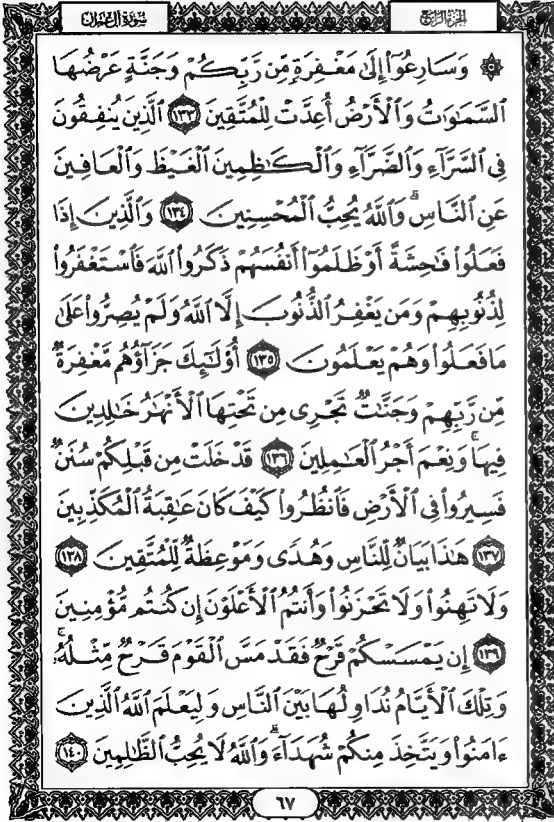 سورة آل عمران
الجزء الرابع
۞ وَسَارِعُوٓا۟ إِلَىٰ مَغْفِرَةٍ مِّن رَّبِّكُمْ وَجَنَّةٍ عَرْضُهَا
ٱلسَّمَٰوَٰتُ وَٱلْأَرْضُ أُعِدَّتْ لِلْمُتَّقِينَ ١٣٣ ٱلَّذِينَ يُنفِقُونَ
فِى ٱلسَّرَّآءِ وَٱلضَّرَّآءِ وَٱلْكَٰظِمِينَ ٱلْغَيْظَ وَٱلْعَافِينَ
عَنِ ٱلنَّاسِ ۗ وَٱللَّهُ يُحِبُّ ٱلْمُحْسِنِينَ ١٣٤ وَٱلَّذِينَ إِذَا
فَعَلُوا۟ فَٰحِشَةً أَوْ ظَلَمُوٓا۟ أَنفُسَهُمْ ذَكَرُوا۟ ٱللَّهَ فَٱسْتَغْفَرُوا۟
لِذُنُوبِهِمْ وَمَن يَغْفِرُ ٱلذُّنُوبَ إِلَّا ٱللَّهُ وَلَمْ يُصِرُّوا۟ عَلَىٰ
مَا فَعَلُوا۟ وَهُمْ يَعْلَمُونَ ١٣٥ أُو۟لَٰٓئِكَ جَزَآؤُهُم مَّغْفِرَةٌ
مِّن رَّبِّهِمْ وَجَنَّٰتٌ تَجْرِى مِن تَحْتِهَا ٱلْأَنْهَٰرُ خَٰلِدِينَ
فِيهَا ۚ وَنِعْمَ أَجْرُ ٱلْعَٰمِلِينَ ١٣٦ قَدْ خَلَتْ مِن قَبْلِكُمْ سُنَنٌ
فَسِيرُوا۟ فِى ٱلْأَرْضِ فَٱنظُرُوا۟ كَيْفَ كَانَ عَٰقِبَةُ ٱلْمُكَذِّبِينَ
١٣٧ هَٰذَا بَيَانٌ لِّلنَّاسِ وَهُدًى وَمَوْعِظَةٌ لِّلْمُتَّقِينَ ١٣٨
وَلَا تَهِنُوا۟ وَلَا تَحْزَنُوا۟ وَأَنتُمُ ٱلْأَعْلَوْنَ إِن كُنتُم مُّؤْمِنِينَ
١٣٩ إِن يَمْسَسْكُمْ قَرْحٌ فَقَدْ مَسَّ ٱلْقَوْمَ قَرْحٌ مِّثْلُهُۥ ۚ
وَتِلْكَ ٱلْأَيَّامُ نُدَاوِلُهَا بَيْنَ ٱلنَّاسِ وَلِيَعْلَمَ ٱللَّهُ ٱلَّذِينَ
ءَامَنُوا۟ وَيَتَّخِذَ مِنكُمْ شُهَدَآءَ ۗ وَٱللَّهُ لَا يُحِبُّ ٱلظَّٰلِمِينَ ١٤٠
٦٧